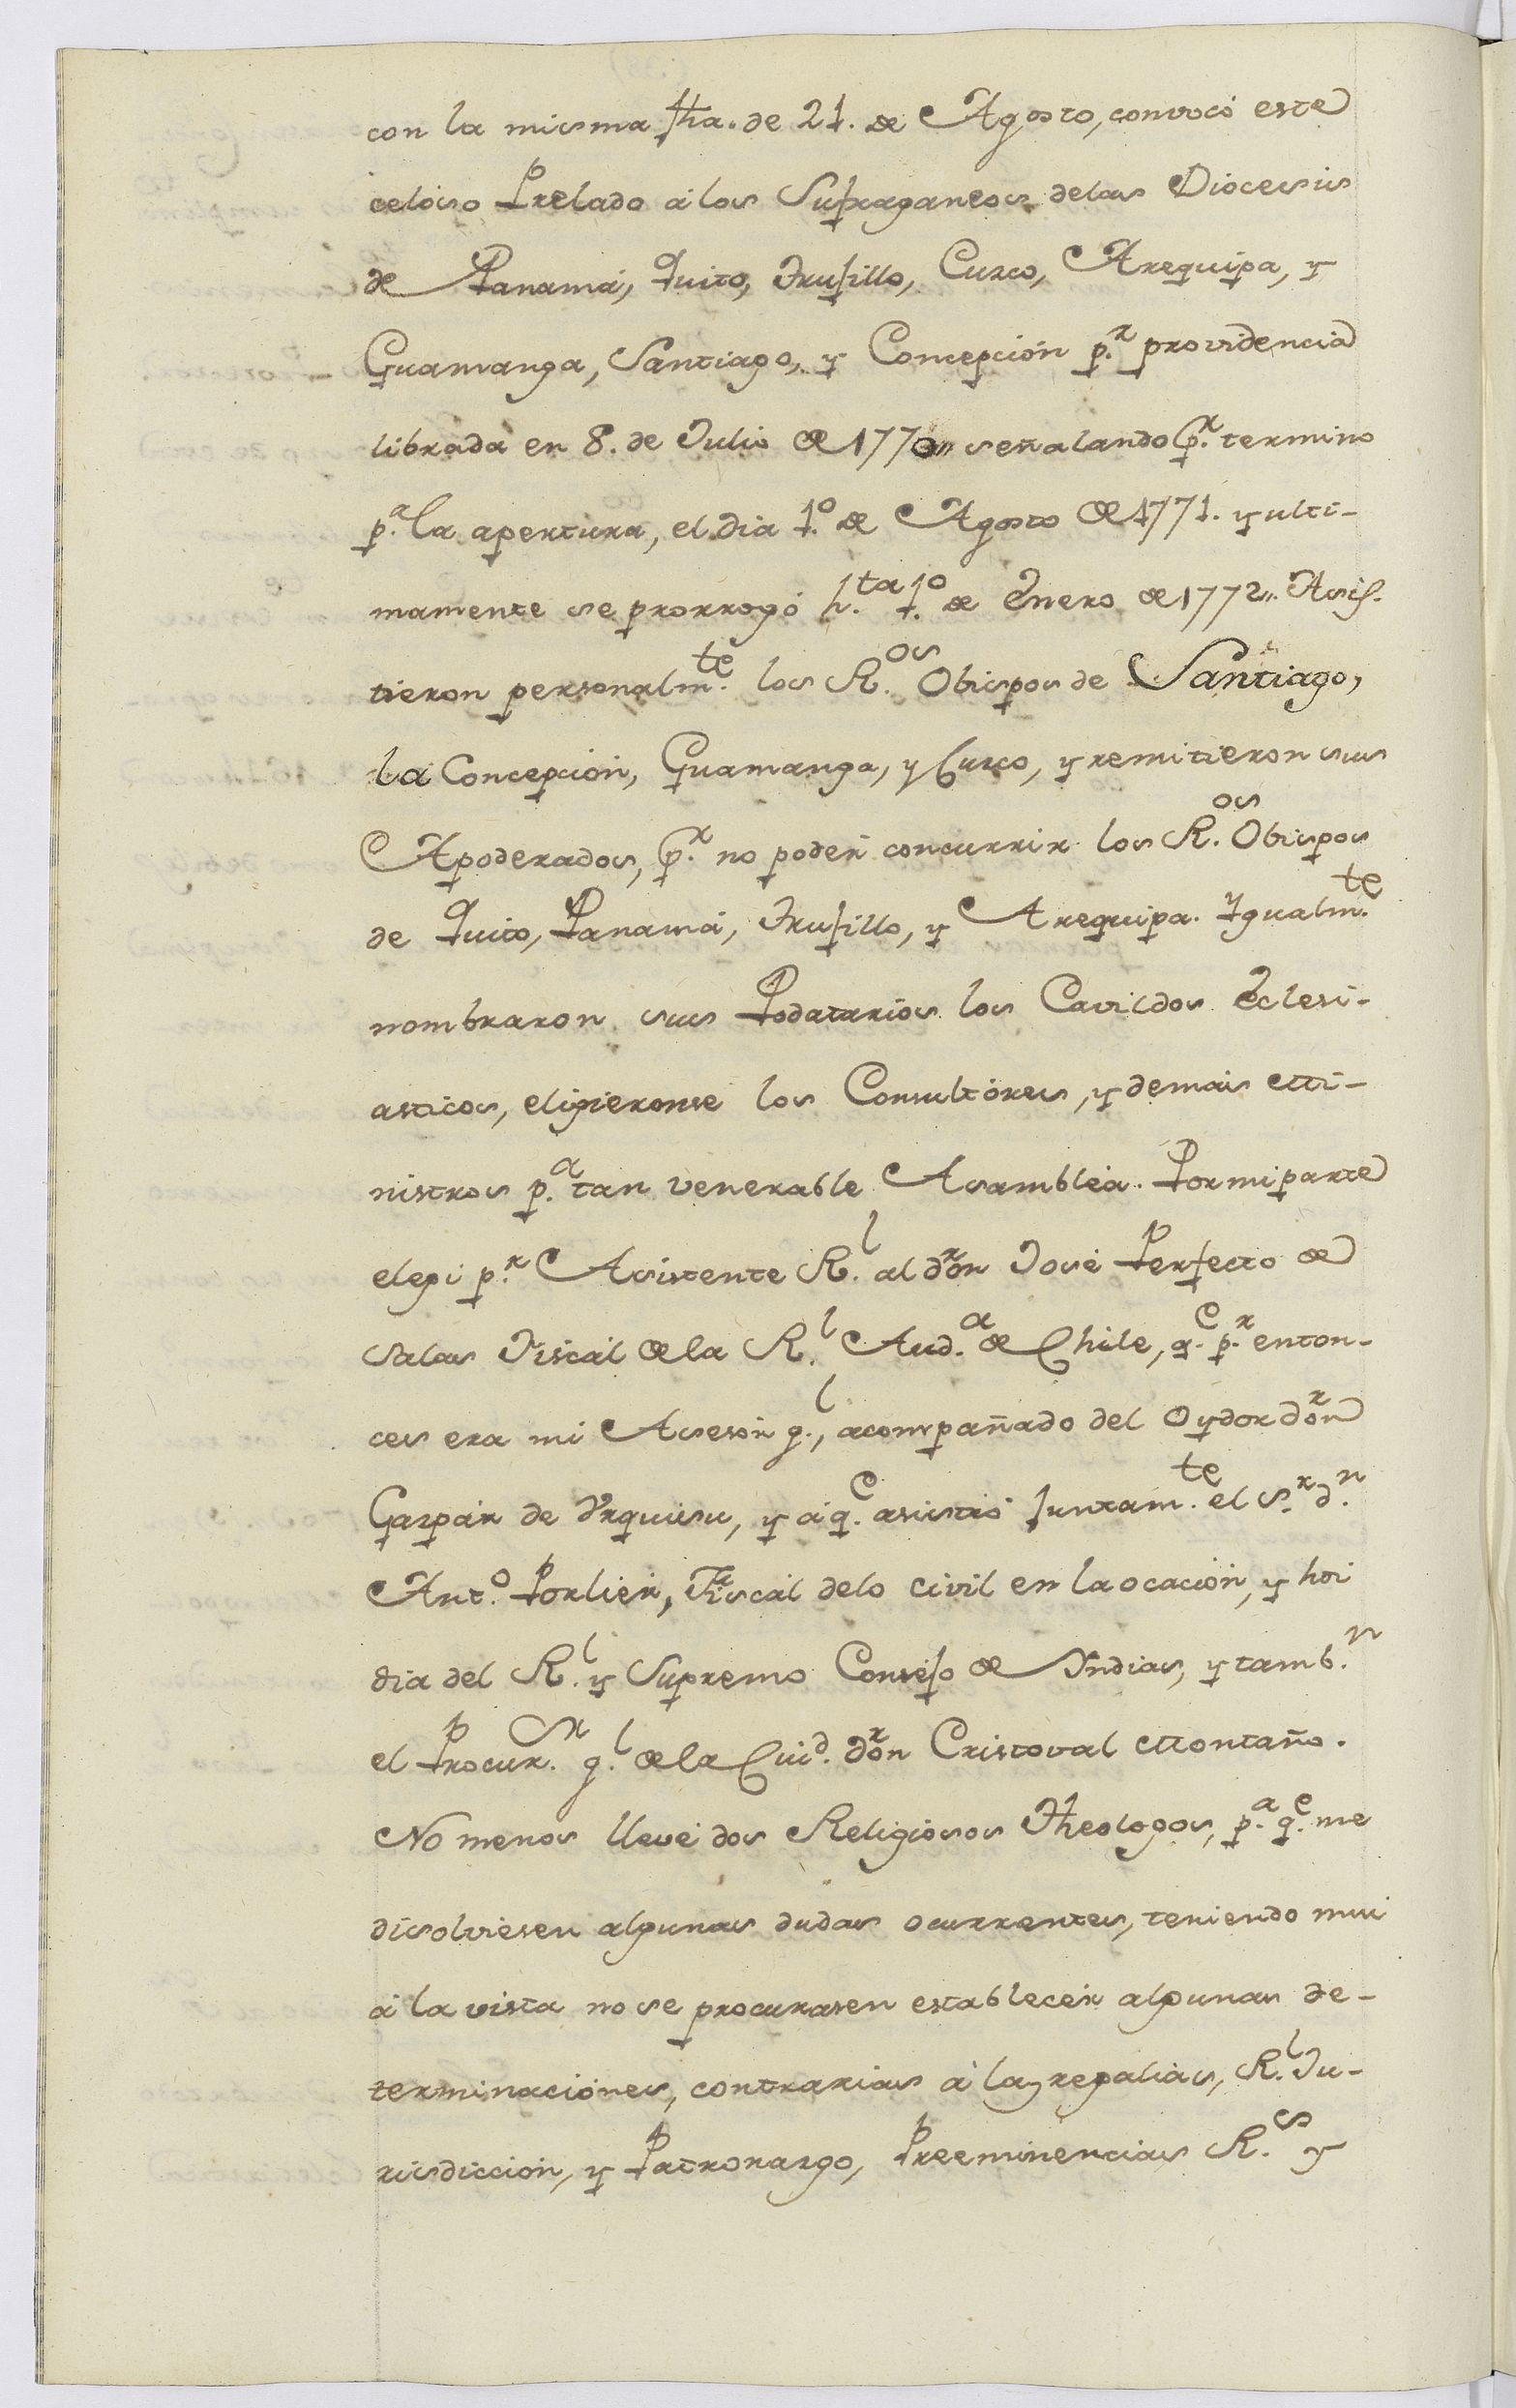 con la misma fha. de 21. de Agosto, convocó este
celoso Prelado á los Sufraganeos delas Diocesis
de Panamá, Quito, Trujillo, Cuzco, Arequipa, y
Guamanga, Santiago, y Concepción p.r providencia
librada en 8. de Julio de 1770,, señalando p.r termino
p.a la apertura, el dia 1.o de Agosto de 1771. y ulti-
mamente se prorrogó h.ta 1.o de Enero de 1772,, Asis-
tieron personalm.te los R.os Obispos de Santiago,
la Concepción, Guamanga, y Cuzco, y remitieron sus
Apoderados, p.r no poder concurrir los R.os Obispos
de Quito, Panamá, Trujillo, y Arequipa. Igualm.te
nombraron sus Podatarios los Cavildos Eclesi-
asticos, eligieronse los Consultóres, y demais Mi-
nistros p.a tan venerable Asambléa. Por mi parte
elegi p.r Asistente R.l al dr. don José Perfecto de
Salas Fiscal de la R.l Aud.a de Chile, q.e p.r enton-
ces era mi Asesor g.l, acompañado del Oydor dr. don
Gaspár de Urquisu, y á q.e asistió juntam.te el S.r d.n
Ant.o Porlier, Fiscal delo civil en la ocación, y hoi
dia del R.l y Supremo Consejo de Indias, y tamb.n
el Procur.or g.l de la Ciud. dr. don Cristoval Montaño.
No menos llevé dos Religiosos Theologos, p.a q.e me
disolviesen algunas dudas ocurrentes, teniendo mui
á la vista no se procurasen establecér algunas de-
terminaciónes, contrarias á las regalias, R.l Ju-
risdiccion, y Patronazgo, Preeminencias R.s y